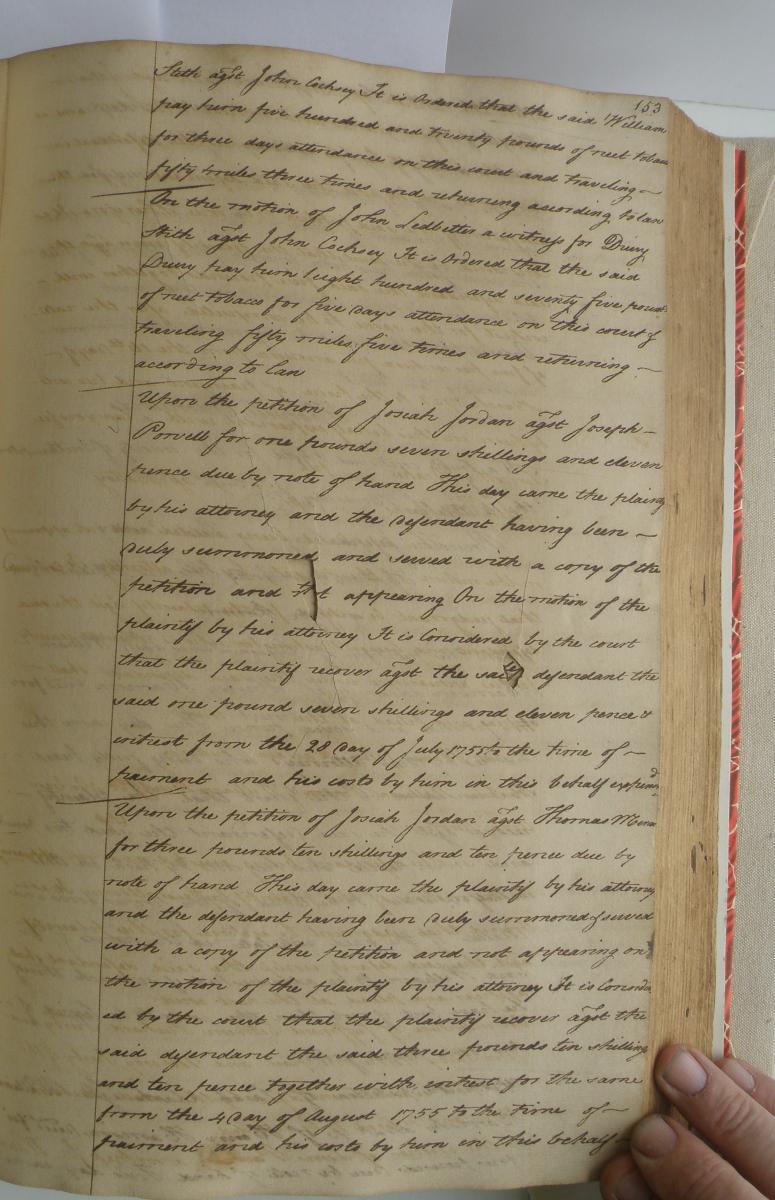 153
Stith agst John Cocksey It is Ordered that the said William
pay him five hundred and twenty pounds of neet tobac
for three days attendance on this court and traveling
fifty miles three times and returning according to law
On the motion of John Ledbetter a witness for Drury
Stith agst John Cocksey It is Ordered that the said
Drury pay him eight hundred and seventy five pound
of neet tobacco for five days attendance on this court &
traveling fifty miles five times and returning
according to law
Upon the petition of Josiah Jordan agst Joseph
Powell for one pounds seven shillings and eleven
pence due by note of hand This day came the plaintif
by his attorney and the defendant having been
duly summoned and served with a copy of the
petition and not appearing On the motion of the
plaintif by his attorney It is Considered by the court
that the plaintif recover agst the said defendant the
said one pound seven shillings and eleven pence &
intrest from the 28 day of July 1755 to the time of
paiment and his costs by him in this behalf expend
Upon the petition of Josiah Jordan agst Thomas
for three pounds ten shillings and ten pence due by
note of hand This day came the plaintif by his attorney
and the defendant having been duly summoned & served
with a copy of the petition and not appearing on
the motion of the plaintif by his attorney It is Consider
ed by the court that the plaintif recover agst the
said defendant the said three pounds ten shillings
and ten pence together with intrest for the same
from the 4 day of August 1755 to the time of
paiment and his costs by him in this behalf